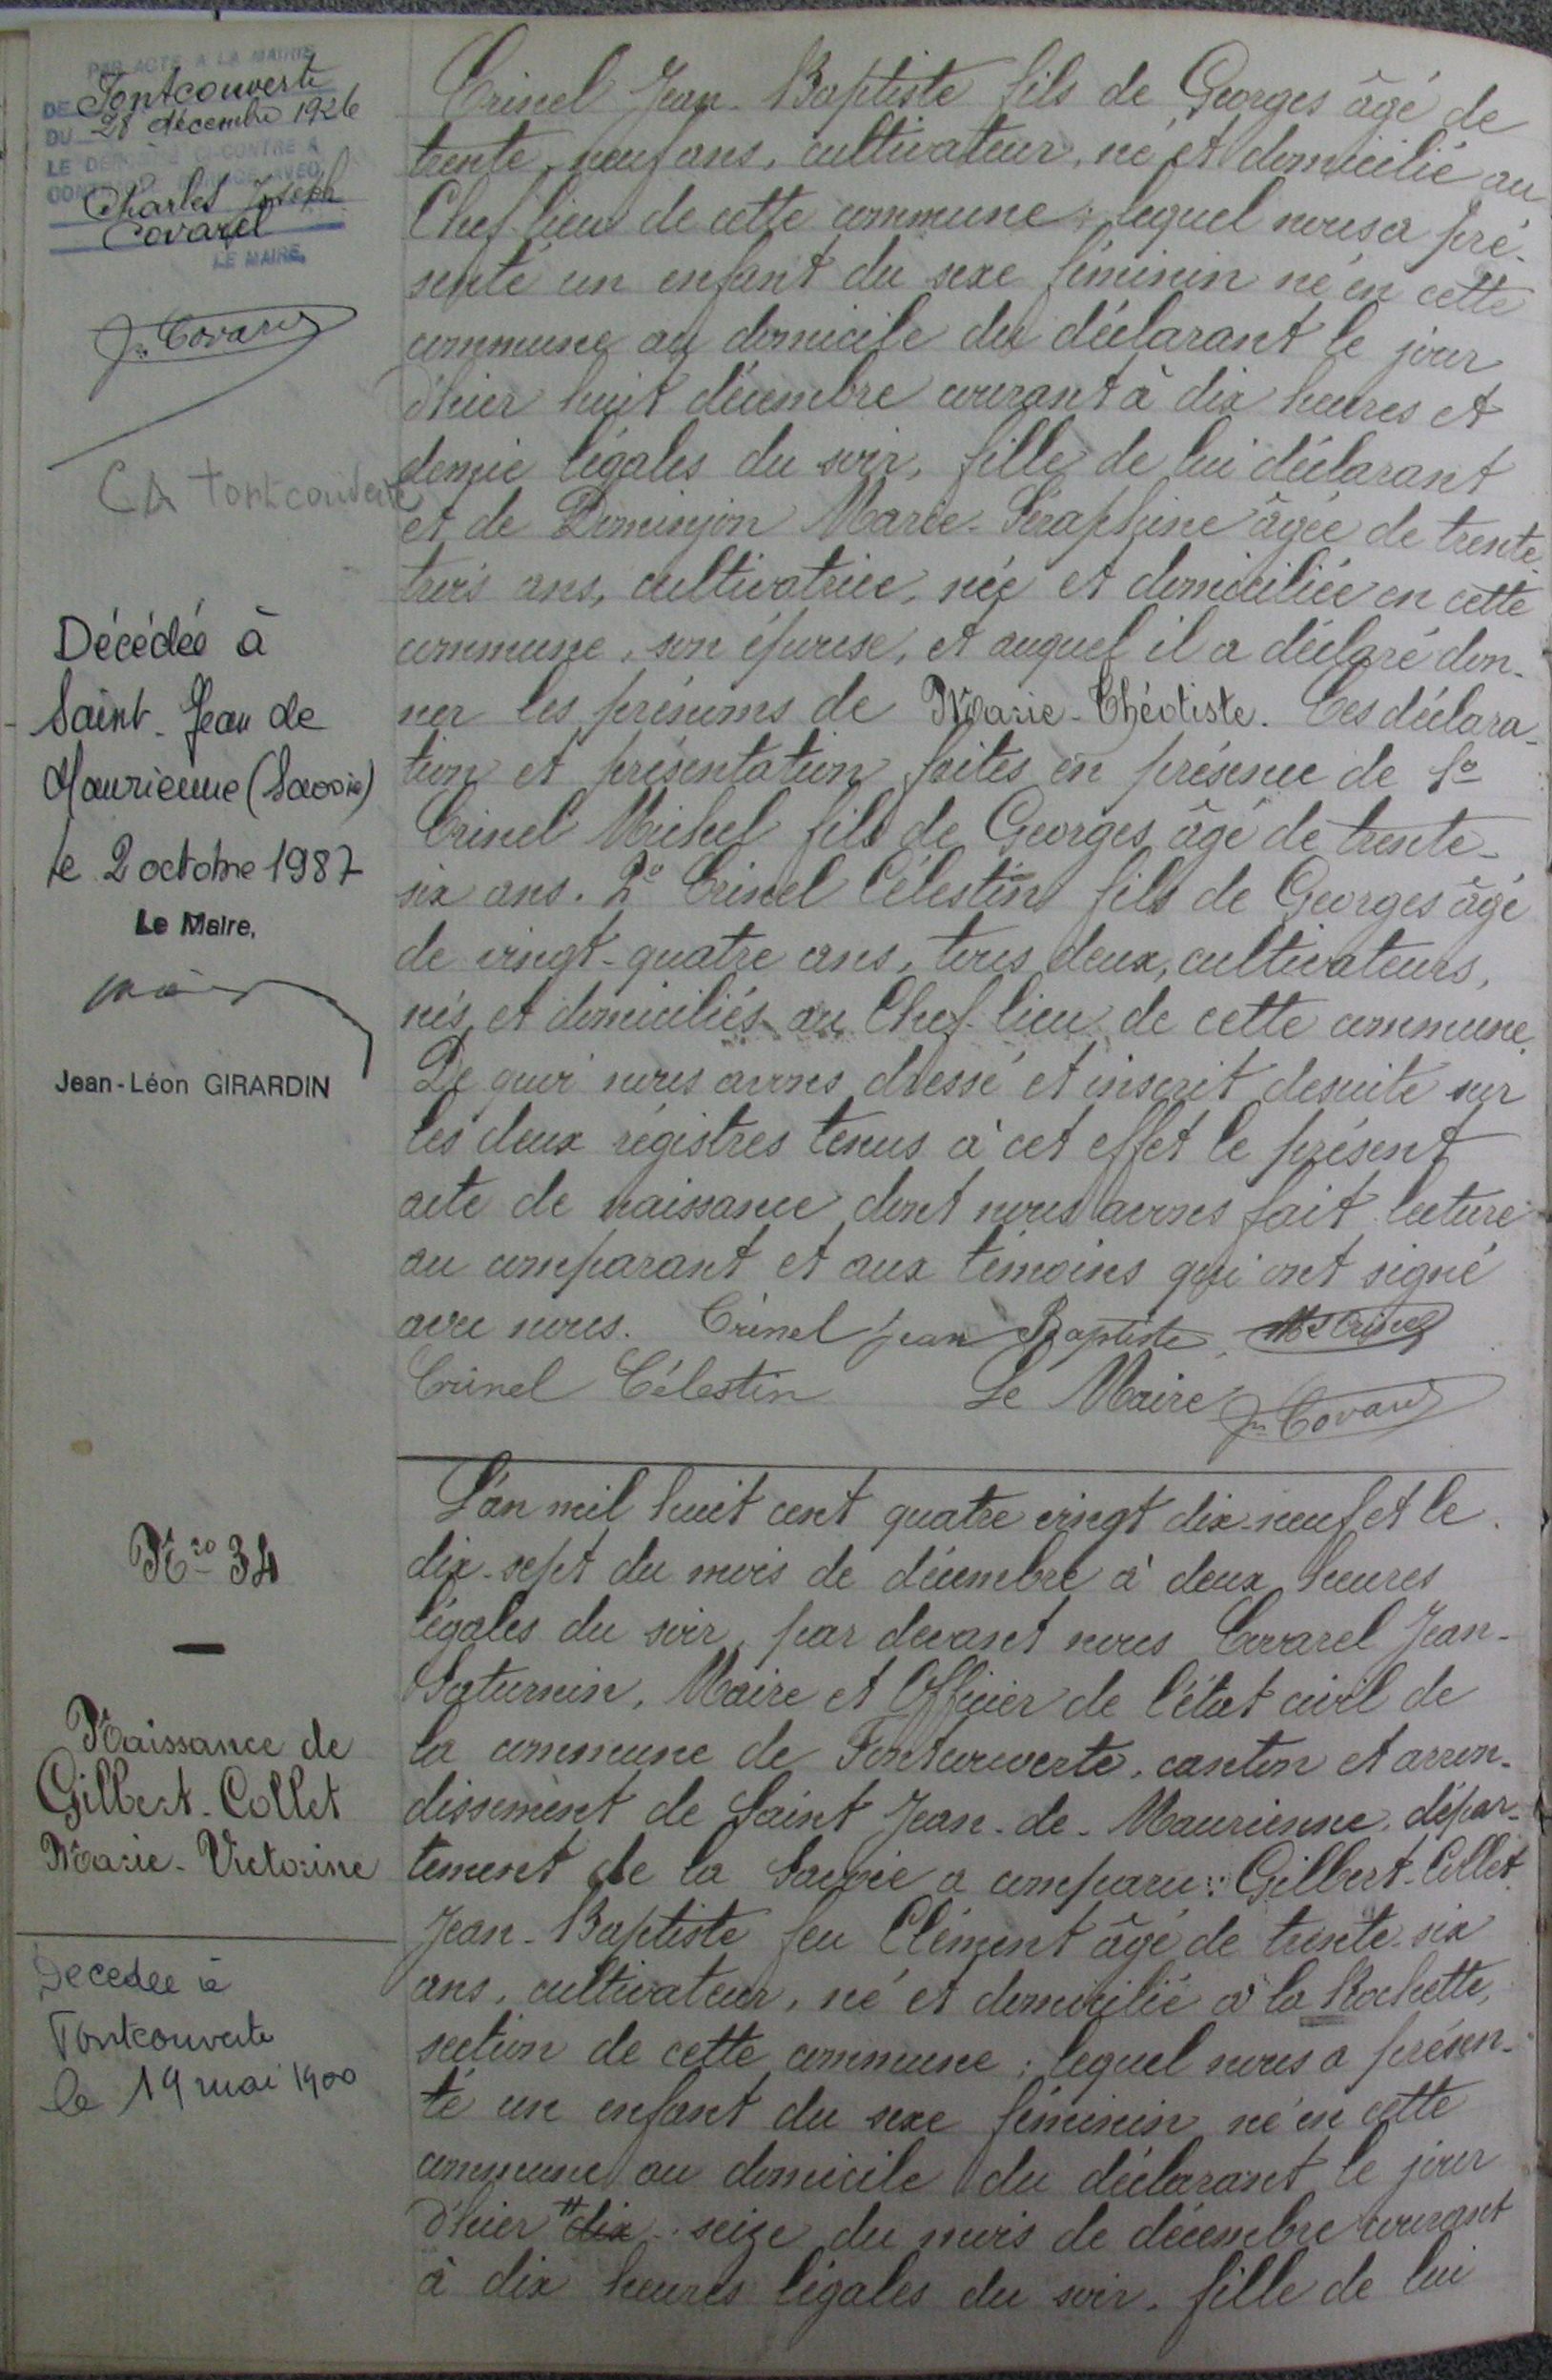 PAR ACTE A LA MAIRIE
DE Fontcouverte
DU 28 décembre 1926
LE DENOMMÉ CI-CONTRE A
MARIAGE AVEC
Charles Joseph
Covarel
LE MAIRE,
J. Covarel
CA Fontcouverte
Décédée à
Saint-Jean de
Maurienne (Savoie)
le 2 octobre 1987
Le Maire,
Jean-Léon GIRARDIN
Crinel Jean-Baptiste fils de Georges âgé de
trente neuf ans, cultivateur, né et domicilié au
Chef-lieu de cette commune; lequel nous a pré-
senté un enfant du sexe féminin né en cette
commune au domicile du déclarant le jour
d'hier huit décembre courant à dix heures et
demie légales du soir, fille de lui déclarant
et de Dominjon Marie-Séraphine âgée de trente
trois ans, cultivatrice, née et domiciliée en cette
commune, son épouse, et auquel il a déclaré don-
ner les prénoms de Marie-Théotiste. Ces déclara-
tion et présentation faites en présence de 1º
Crinel Michel fils de Georges âgé de trente-
six ans. 2º Crinel Célestin fils de Georges âgé
de vingt-quatre ans, tous deux, cultivateurs,
nés et domiciliés au Chef-lieu de cette commune.
De quoi nous avons dressé et inscrit desuite sur
les deux régistres tenus à cet effet le présent
acte de naissance dont nous avons fait lecture
au comparant et aux témoins qui ont signé
avec nous. Crinel Jean Baptiste, M Crinel
Crinel Célestin Le Maire J. Covarel
Nro 34
Naissance de
Gilbert-Collet
Marie-Victorine
Decedee à
Fontcouverte
le 19 mai 1900
L'an mil huit cent quatre vingt dix-neuf et le
dix-sept du mois de décembre à deux heures
légales du soir, par devant nous Covarel Jean-
Saturnin, Maire et Officier de l'état civil de
la commune de Fontcouverte, canton et arron-
dissement de Saint Jean-de-Maurienne, dépar-
tement de la Savoie a comparu: Gilbert-Collet
Jean-Baptiste feu Clément âgé de trente-six
ans, cultivateur, né et domicilié à la Rochette,
section de cette commune; lequel nous a présen-
té un enfant du sexe féminin né en cette
commune au domicile du déclarant le jour
d'hier dix seize du mois de décembre courant
à dix heures légales du soir, fille de lui